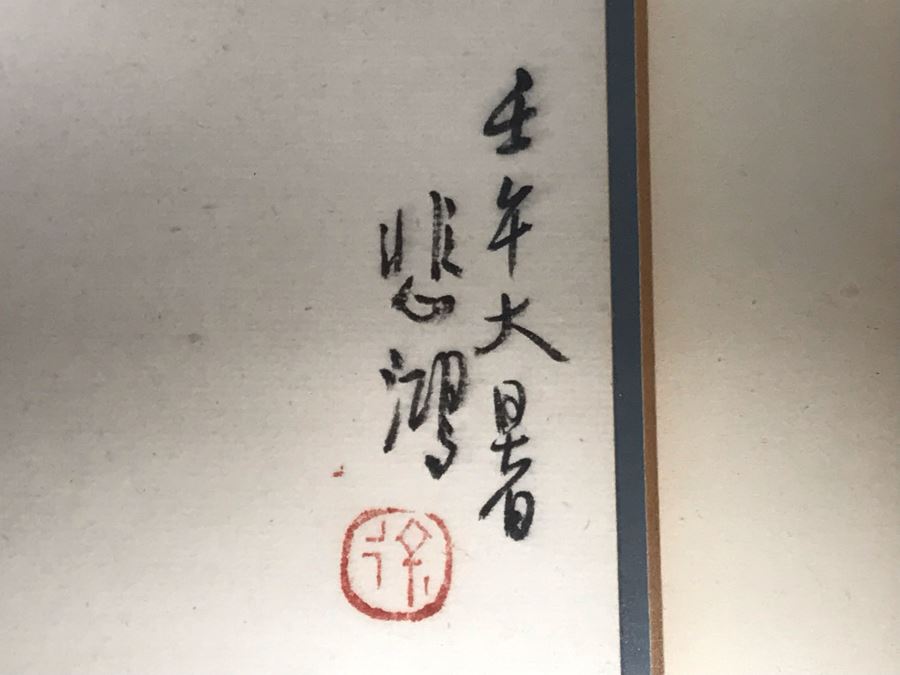 壬午大暑
悲鸿
徐